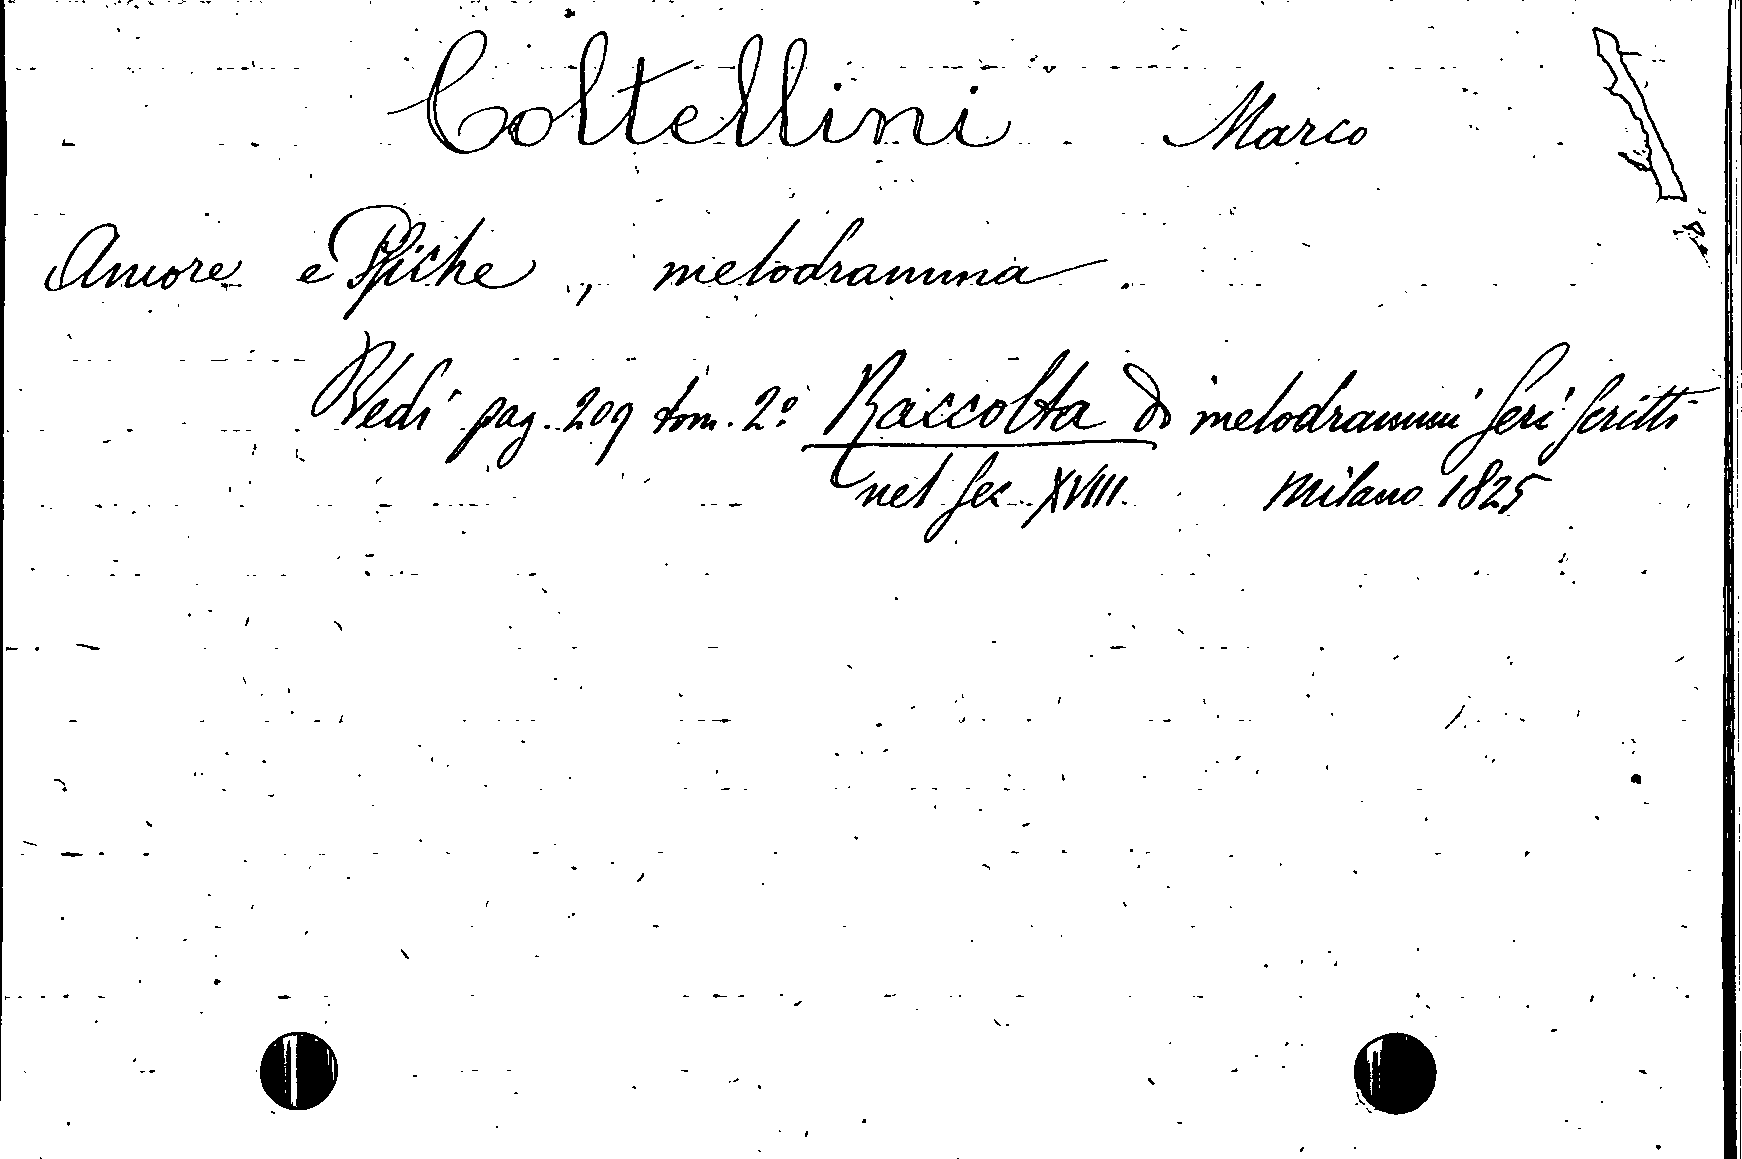 Coltellini Marco
Amore e Psiche, melodramma.
Vedi pag. 209 tom. 2º Raccolta di melodrammi seri scritti
nel sec XVIII. Milano 1825